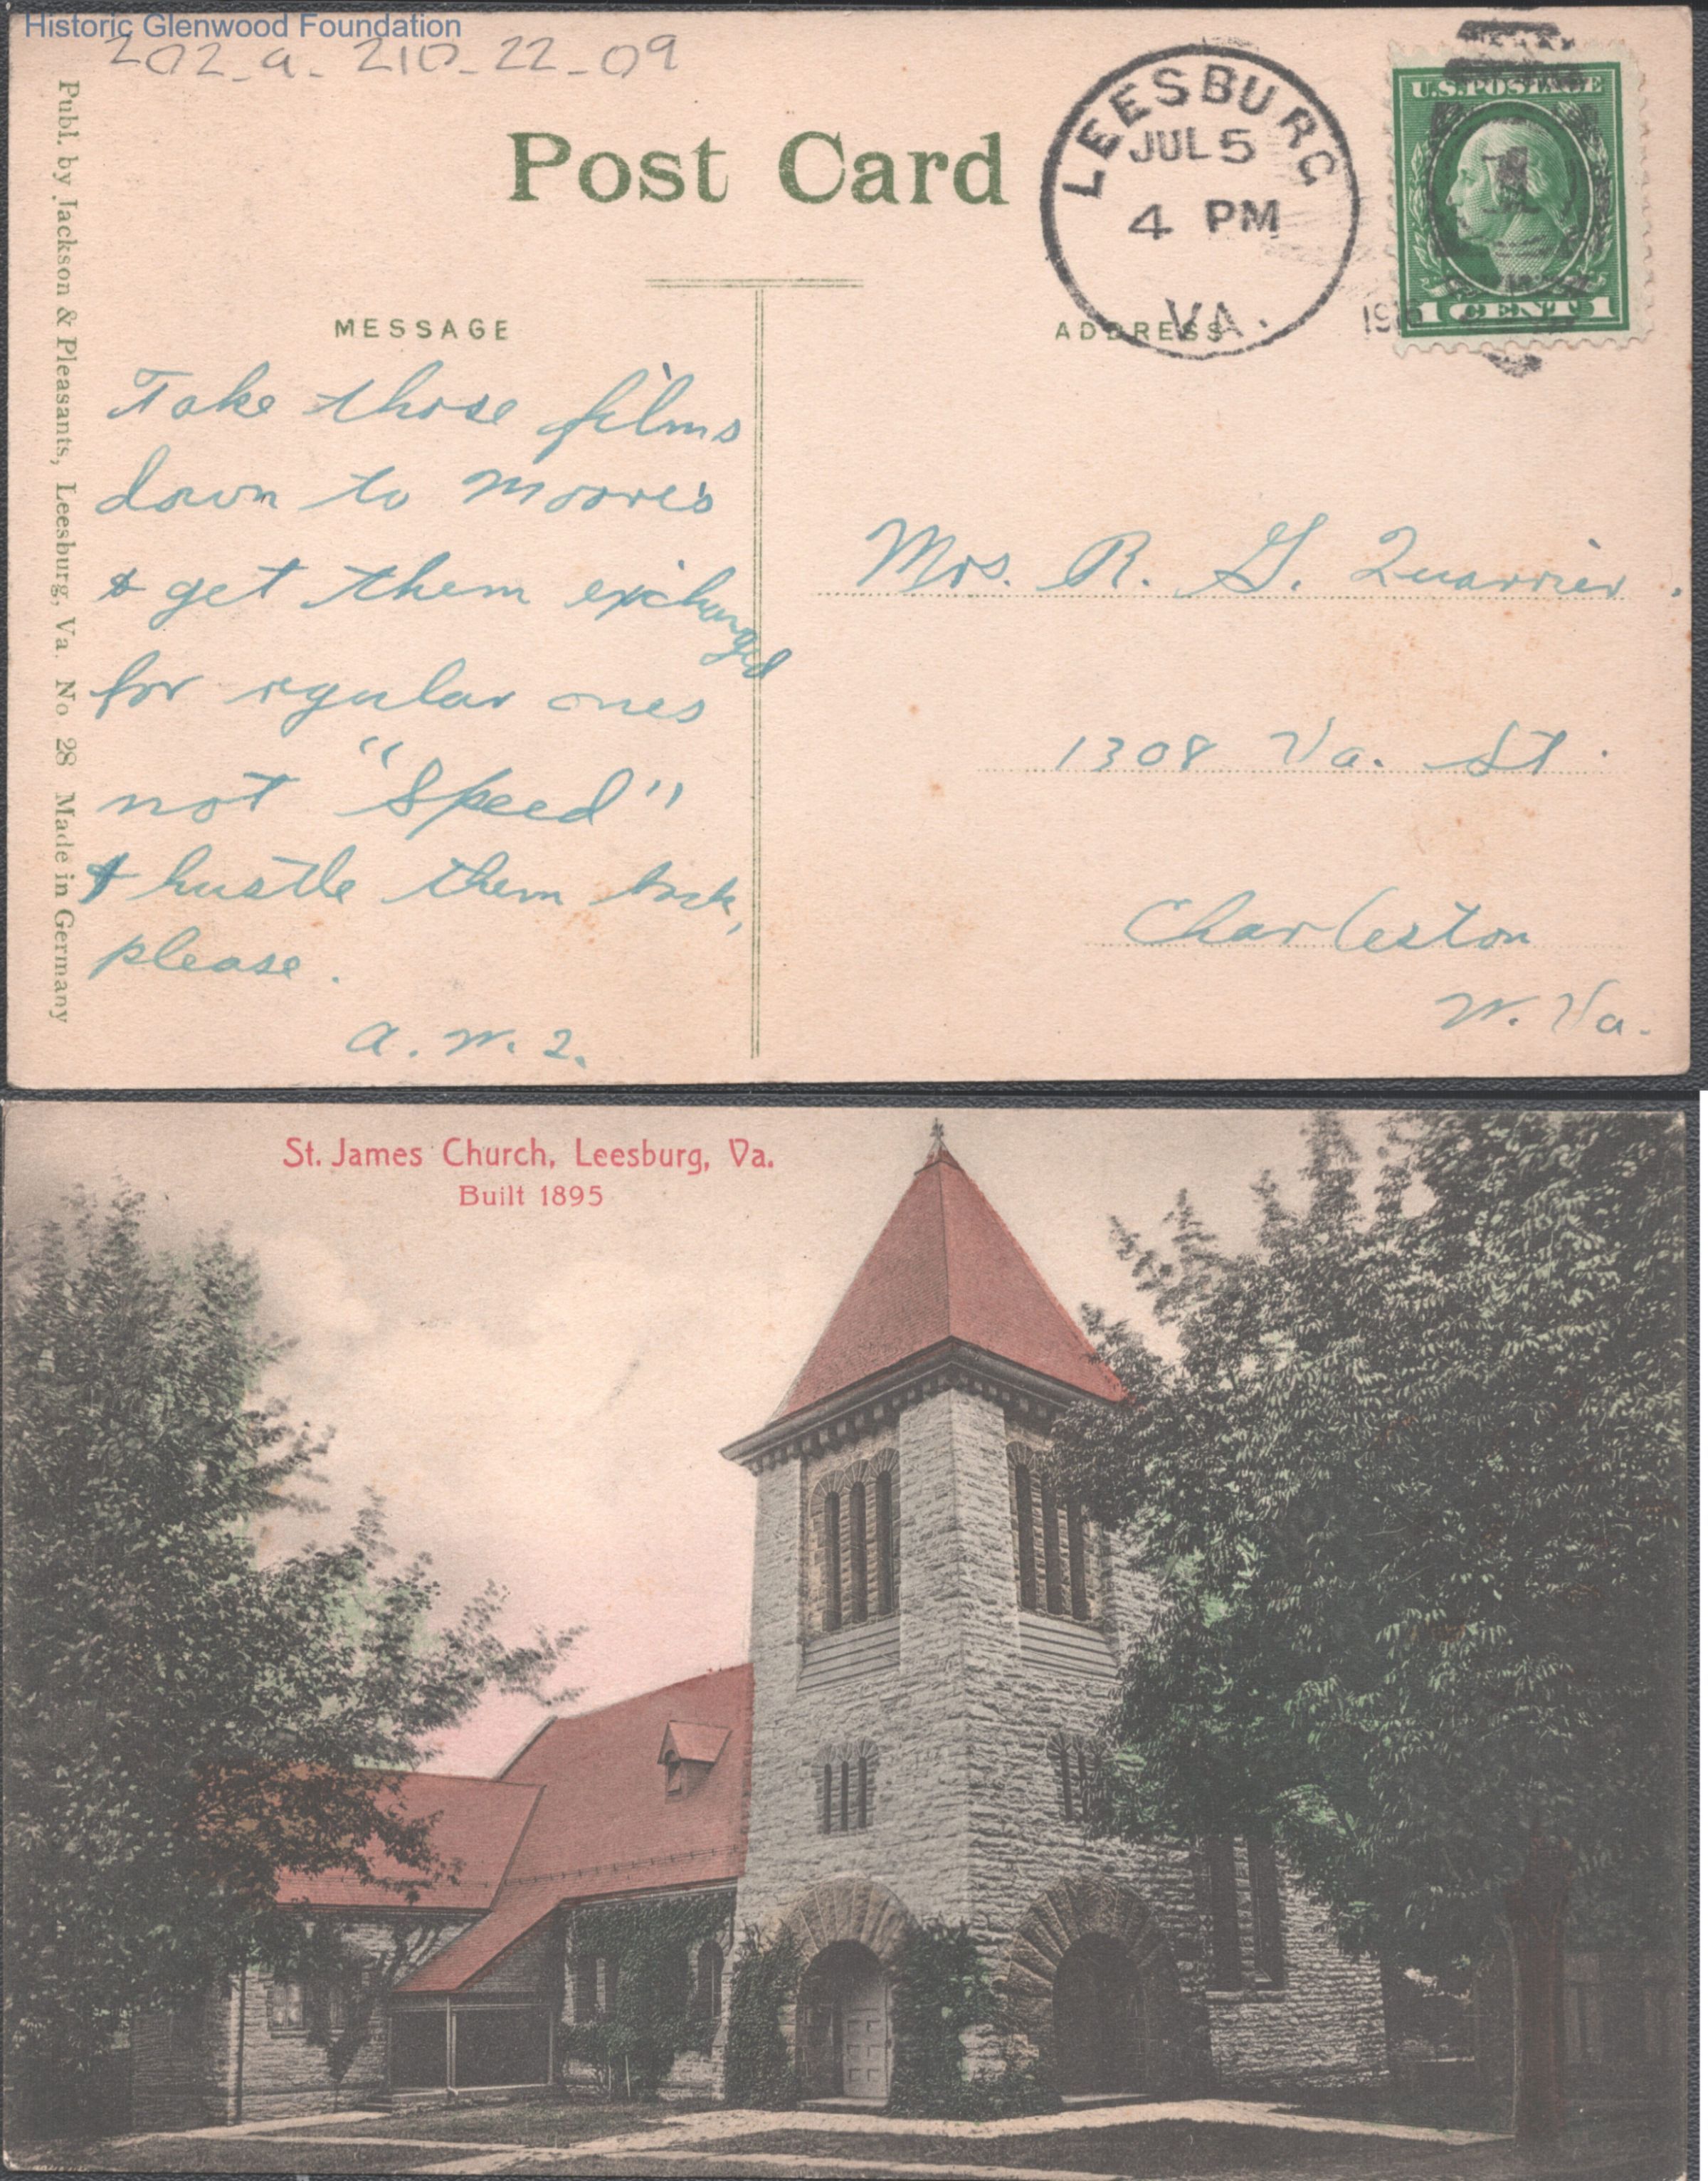 Historic Glenwood Foundation
202_a_210_22_09
Post Card
LEESBURG
JUL 5
4 PM
VA.
U.S. POSTAGE
1 CENT 1
MESSAGE
ADDRESS
Take those films
down to Moore's
& get them exchanged
for regular ones
not "Speed"
& hustle them back,
please.
Mrs. R. G. Quarrier.
1308 Va. St.
Charleston
W. Va.
Publ. by Jackson & Pleasants, Leesburg, Va. No 28 Made in Germany
St. James Church, Leesburg, Va.
Built 1895